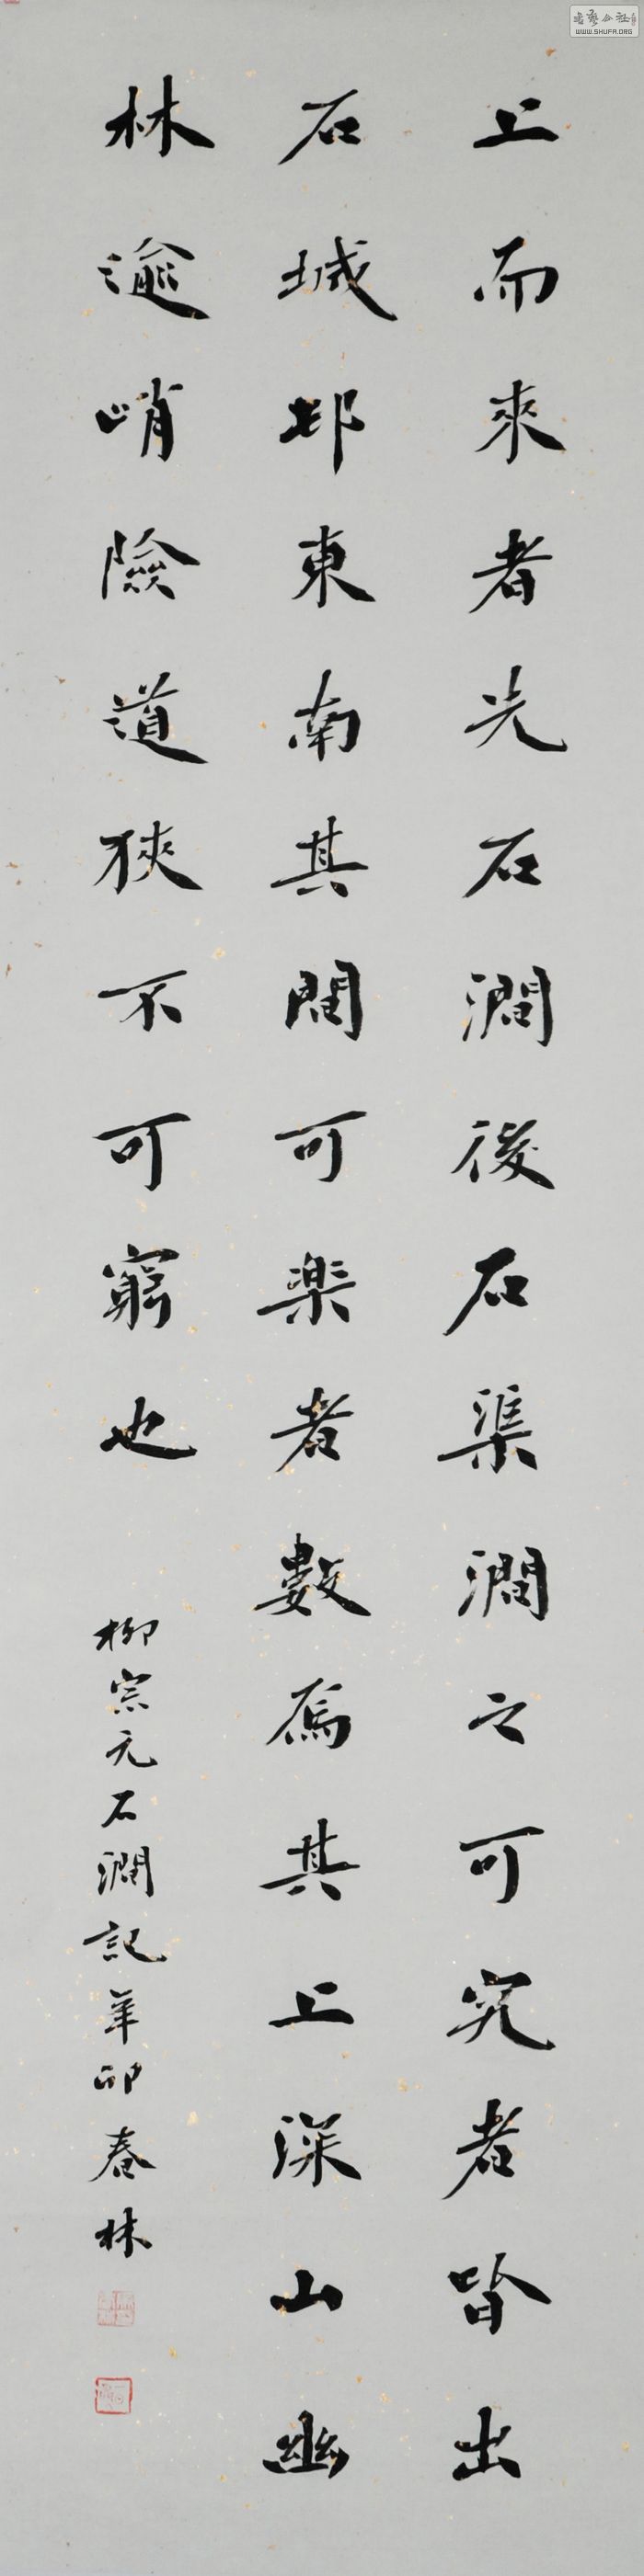 上而來者先石澗後石渠澗之可究者皆出
石城邨東南其間可楽者數焉其上深山幽
林逾峭險道狹不可窮也
柳宗元石澗記辛卯春林
WWW.SHUFA.ORG